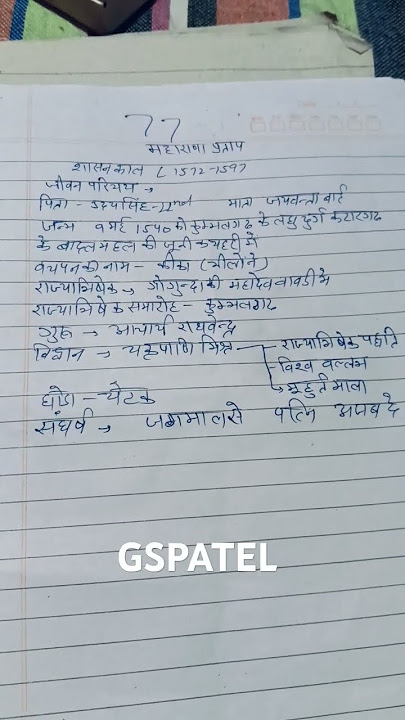 77
महाराणा प्रताप
शासनकाल (1572-1597
जीवन परिचय →
पिता - उदयसिंह-IInd माता जयवन्ता बाई
जन्म 9 मई 1540 को कुम्भलगढ के लघु दुर्ग कटारगढ
के बादल महल की जूनी कचहरी में
बचपन का नाम - कीका (भीलो ने)
राज्याभिषेक → गोगुन्दा की महादेव बावडी मे
राज्याभिषेक समारोह - कुम्भलगढ
गुरू → आचार्य राघवेन्द्र
विद्वान → चक्रपाणि मिश्र → राज्याभिषेक पद्दति
- विश्व वल्लभ
→ मुहुर्त माला
घोडा - चेटक
संघर्ष → जगमाल से पत्नि
GSPATEL